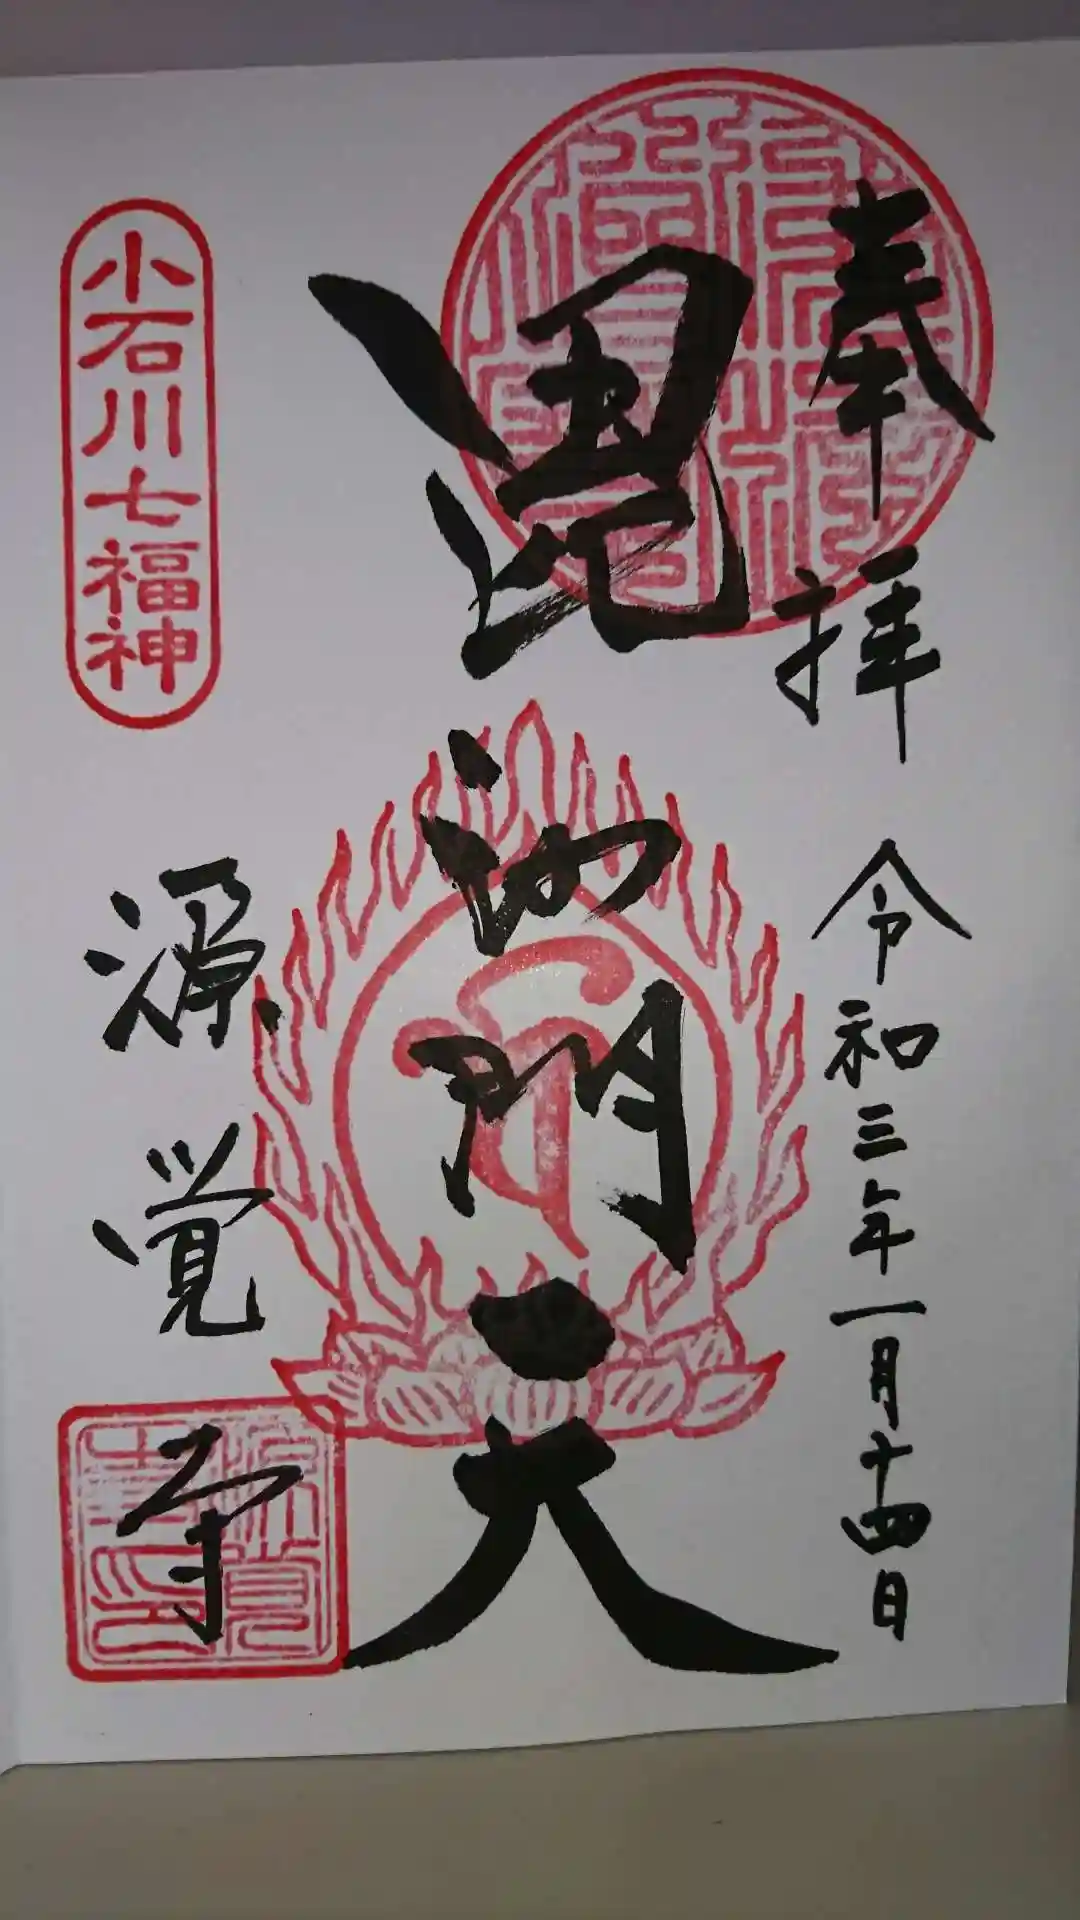 奉拝
令和三年一月十四日
毘沙門天
小石川七福神
源覚寺